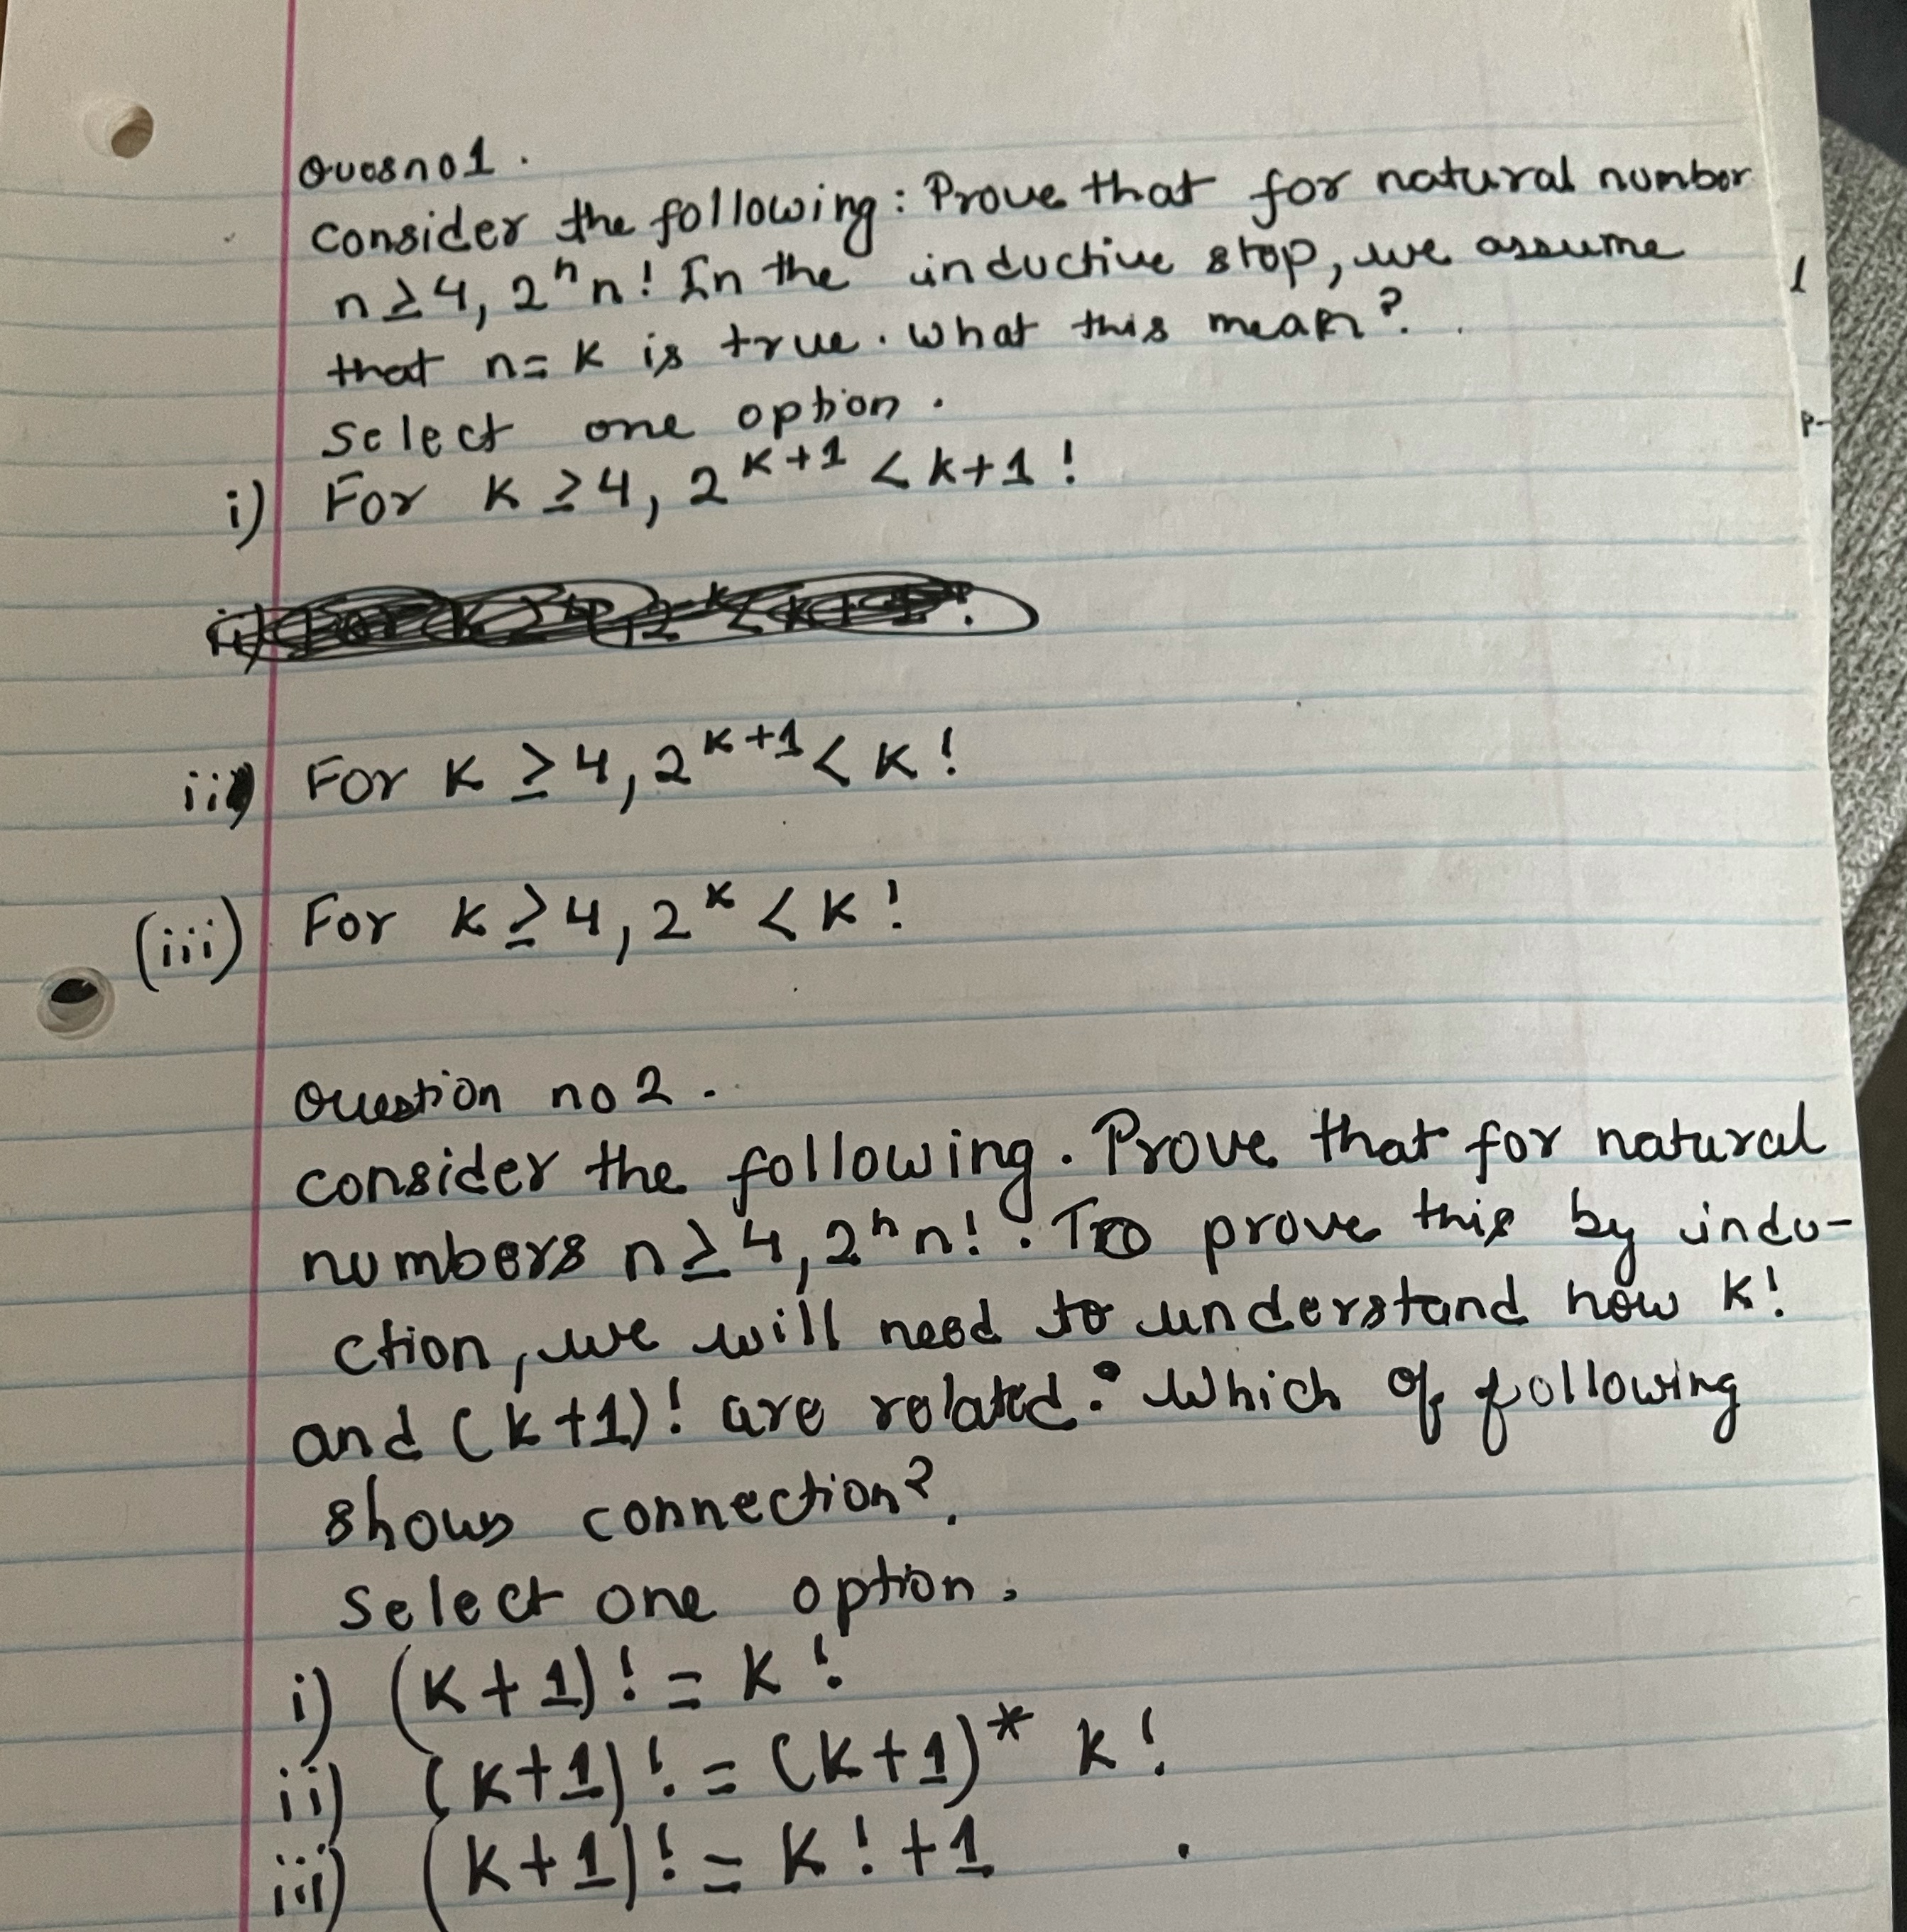 Quesno1.
Consider the following: Prove that for natural number
n≥4, 2ⁿn! In the inductive stop, we assume
that n=K is true. What this mean?.
Select one option.
i) For K≥4, 2^K+1 < K+1!
ii) For K≥4, 2^K+1 < K!
(iii) For K≥4, 2^K < K!
Question no 2.
consider the following. Prove that for natural
numbers n≥4, 2ⁿn!. To prove this by indu-
ction, we will need to understand how K!
and (K+1)! are related. Which of following
shows connection?.
Select one option.
i) (K+1)! = K!
ii) (K+1)! = (K+1)* K!
iii) (K+1)! = K!+1